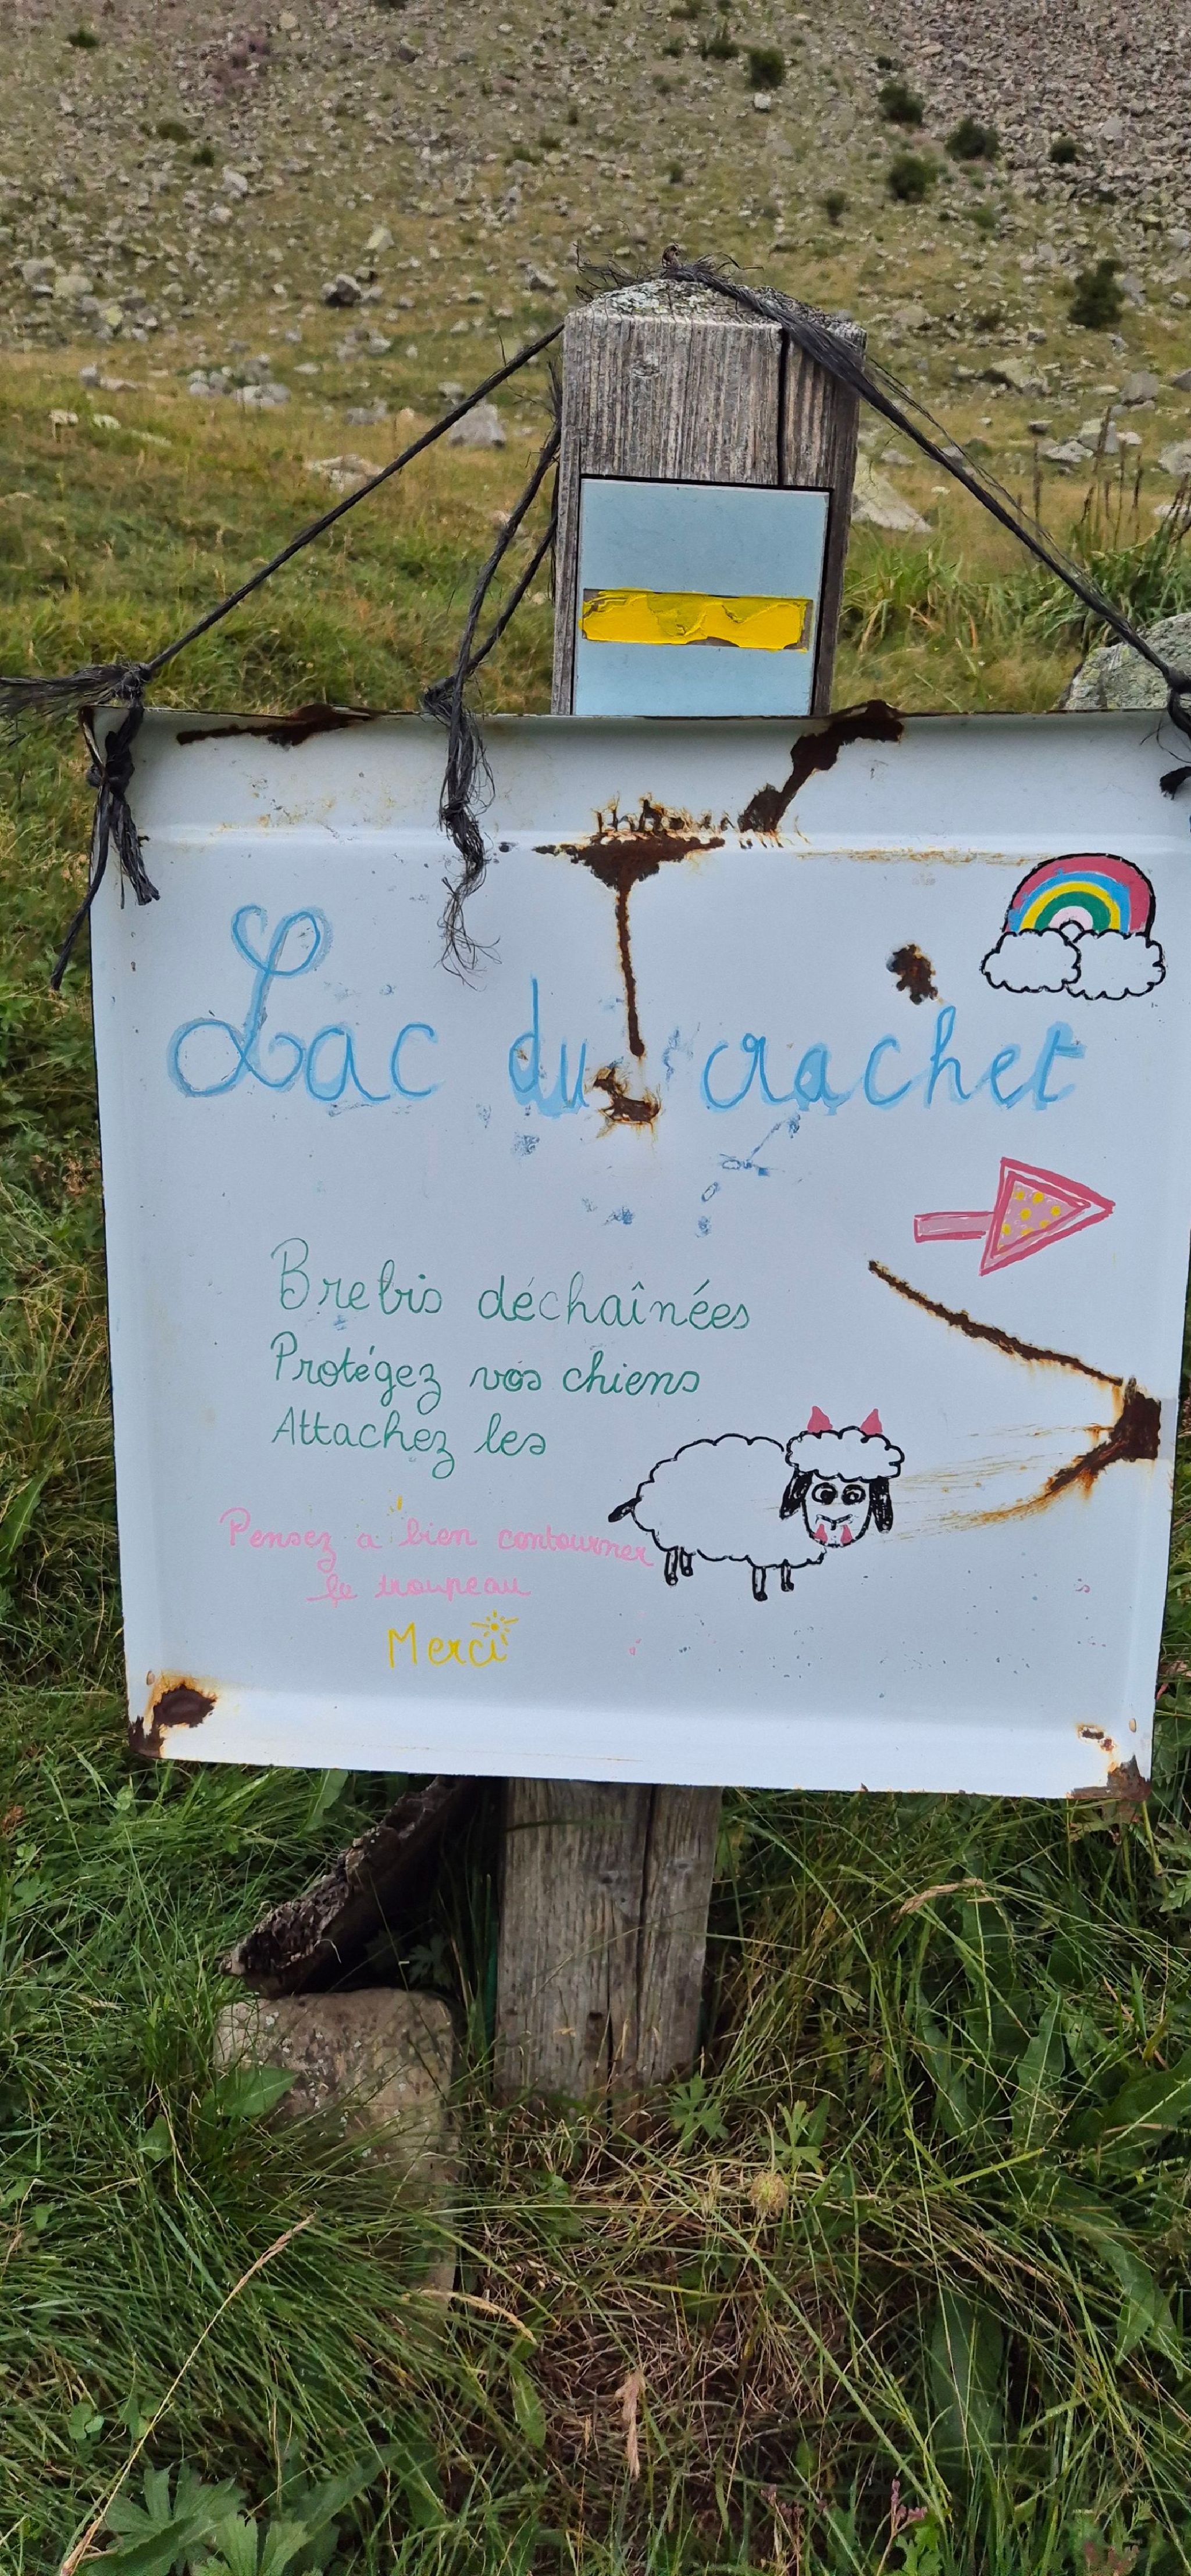 Lac du crachet
Brebis déchaînées
Protégez vos chiens
Attachez les
Pensez a bien contourner
le troupeau
Merci